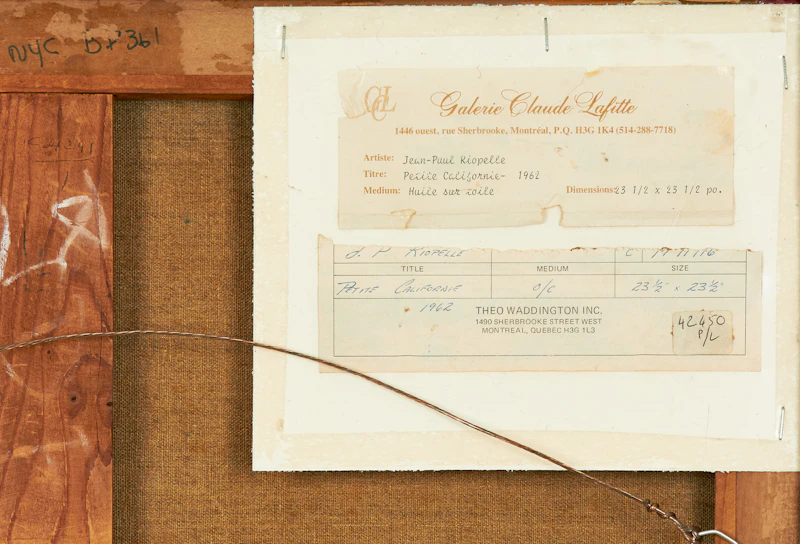 NYC
GCL
Galerie Claude Lafitte
1446 ouest, rue Sherbrooke, Montréal, P.Q. H3G 1K4 (514-288-7718)
Artiste: Jean-Paul Riopelle
Titre: Petite Californie- 1962
Medium: Huile sur toile Dimensions: 23 1/2 x 23 1/2 po.
J. P RIOPELLE
TITLE MEDIUM SIZE
PETITE CALIFORNIE O/C 23 ½" x 23 ½"
1962
THEO WADDINGTON INC.
1490 SHERBROOKE STREET WEST
MONTREAL, QUEBEC H3G 1L3
42450
P/L